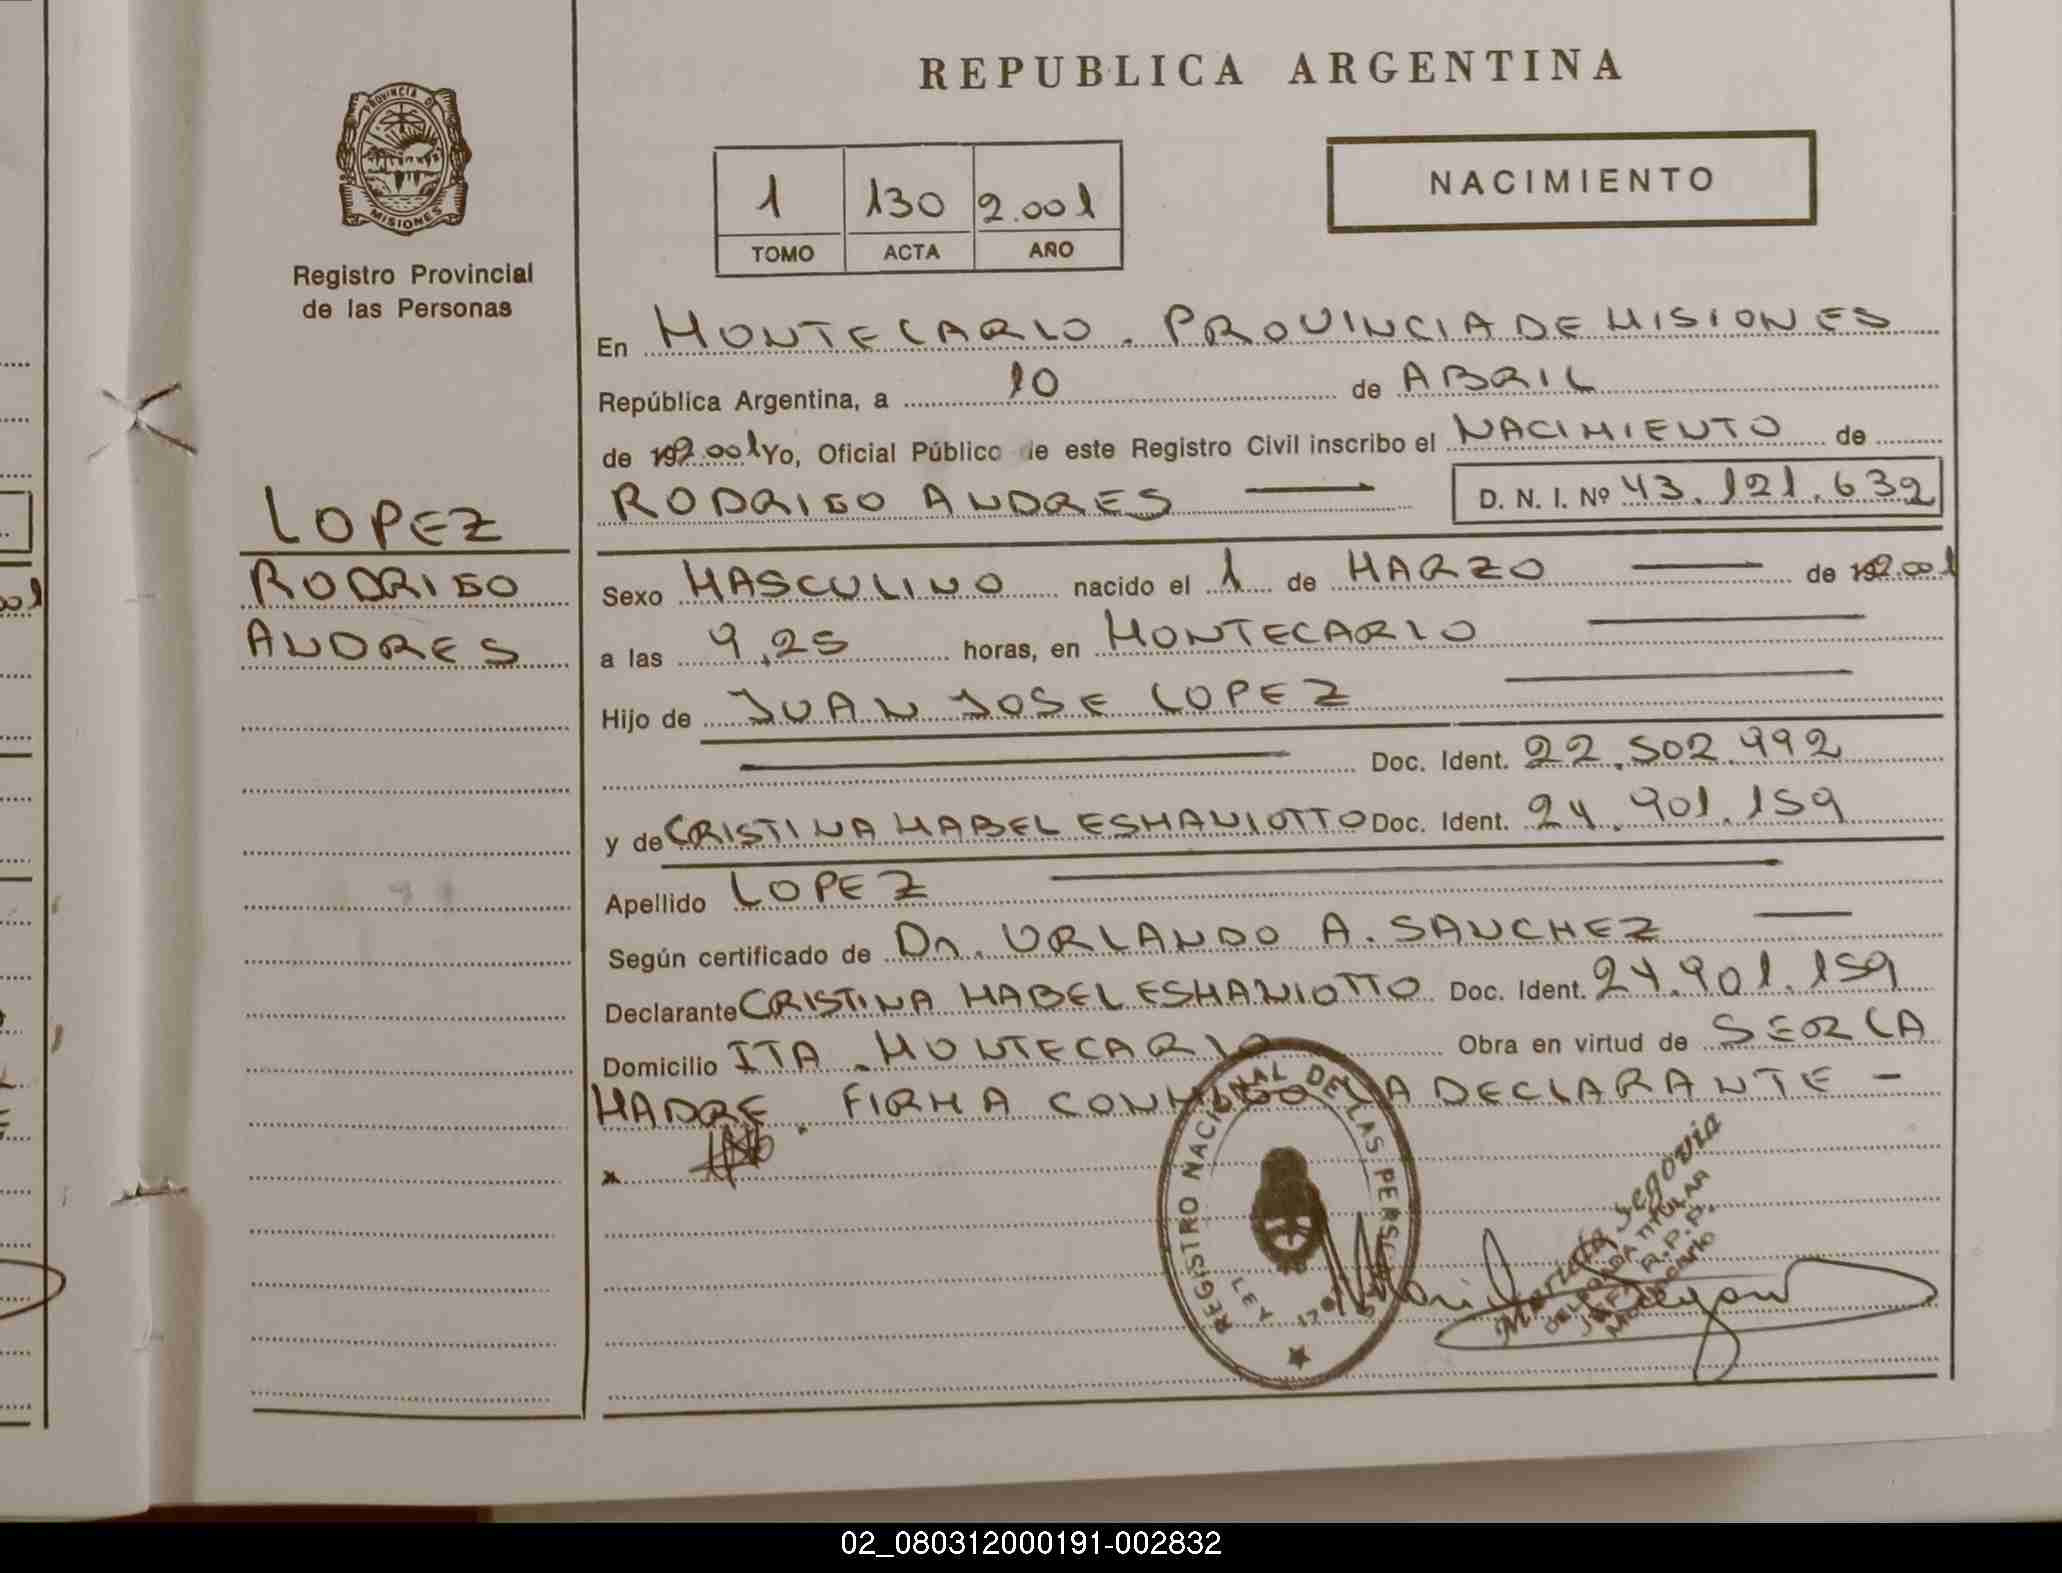 REPUBLICA ARGENTINA
PROVINCIA DE
MISIONES
Registro Provincial
de las Personas
NACIMIENTO
1 130 2.001
TOMO ACTA AÑO
En MONTECARLO. PROVINCIA DE MISIONES
República Argentina, a 10 de ABRIL
de 192.001 Yo, Oficial Público de este Registro Civil inscribo el NACIMIENTO de
RODRIGO ANDRES D. N. I. Nº 43.121.632
LOPEZ
RODRIGO
ANDRES
Sexo MASCULINO nacido el 1 de MARZO de 192.001
a las 9,25 horas, en MONTECARLO
Hijo de JUAN JOSE LOPEZ
Doc. Ident. 22.502.992
y de CRISTINA MABEL ESMANIOTTO Doc. Ident. 24.901.159
Apellido LOPEZ
Según certificado de Dr. ORLANDO A. SANCHEZ
Declarante CRISTINA MABEL ESMANIOTTO Doc. Ident. 24.901.159
Domicilio ITA. MONTECARLO Obra en virtud de SER LA
MADRE. FIRMA CONMIGO LA DECLARANTE -
x
REGISTRO NACIONAL DE LAS PERSONAS
LEY
Segovia
DELEGADA TITULAR
R.P.P.
02_080312000191-002832